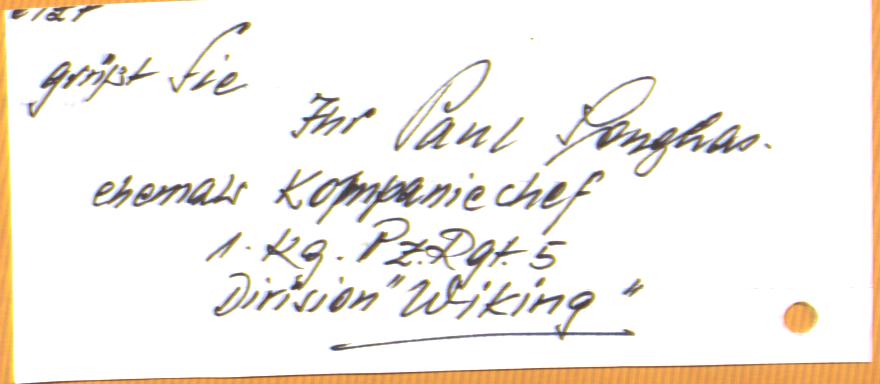 grüßt Sie
Ihr Paul Senghas.
ehemals Kompaniechef
1. Kp. Pz.Rgt. 5
Division "Wiking"